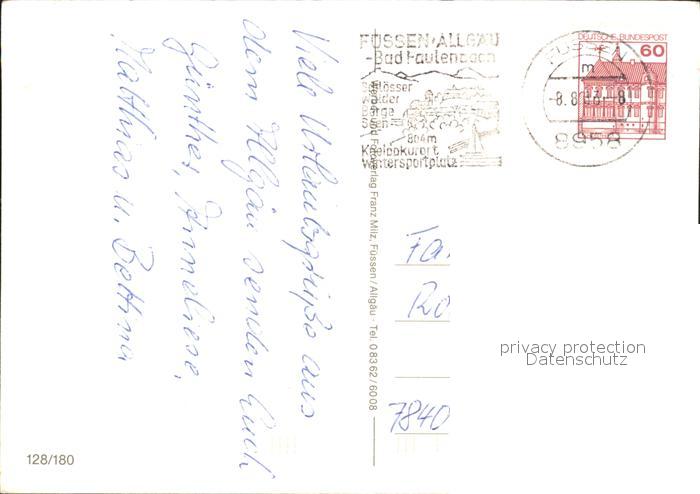 Viele Urlaubsgrüße aus
dem Allgäu senden Euch
Günther, Anneliese,
Matthias u. Bettina
FÜSSEN-ALLGÄU
-Bad Faulenbach
Schlösser
Wälder
Berge
Seen
804m
Kneippkurort
Wintersportplatz
FÜSSEN
m
8958
DEUTSCHE BUNDESPOST
60
Verlag Franz Milz, Füssen/Allgäu · Tel. 08362/6008
Fa.
Ro
7840
privacy protection
Datenschutz
128/180